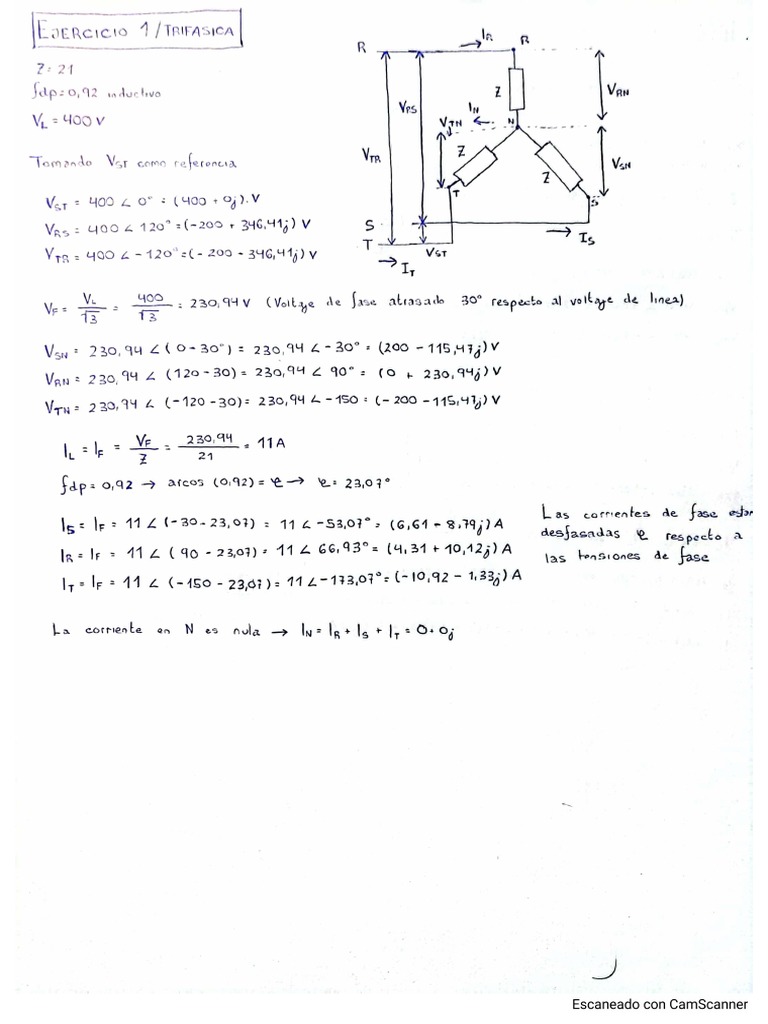 EJERCICIO 1/TRIFASICA
Z = 21
fdp = 0,92 inductivo
V_L = 400 V
Tomando V_ST como referencia
V_ST = 400 ∠ 0° = (400 + 0j).V
V_RS = 400 ∠ 120° = (-200 + 346,41j) V
V_TR = 400 ∠ -120° = (-200 - 346,41j) V
R
I_R
R
Z
V_RS
V_RN
I_N
V_TN
N
V_TR
Z
Z
V_SN
T
S
S
T
V_ST
I_S
I_T
V_F = V_L/√3 = 400/√3 = 230,94 V (Voltaje de fase atrasado 30° respecto al voltaje de linea)
V_SN = 230,94 ∠ (0 - 30°) = 230,94 ∠ -30° = (200 - 115,47j) V
V_RN = 230,94 ∠ (120 - 30) = 230,94 ∠ 90° = (0 + 230,94j) V
V_TN = 230,94 ∠ (-120 - 30) = 230,94 ∠ -150 = (-200 - 115,47j) V
I_L = I_F = V_F/Z = 230,94/21 = 11 A
fdp = 0,92 → arcos (0,92) = φ → φ = 23,07°
I_S = I_F = 11 ∠ (-30 - 23,07) = 11 ∠ -53,07° = (6,61 - 8,79j) A
I_R = I_F = 11 ∠ (90 - 23,07) = 11 ∠ 66,93° = (4,31 + 10,12j) A
I_T = I_F = 11 ∠ (-150 - 23,07) = 11 ∠ -173,07° = (-10,92 - 1,33j) A
Las corrientes de fase estan
desfasadas φ respecto a
las tensiones de fase
La corriente en N es nula → I_N = I_R + I_S + I_T = 0 + 0j
Escaneado con CamScanner